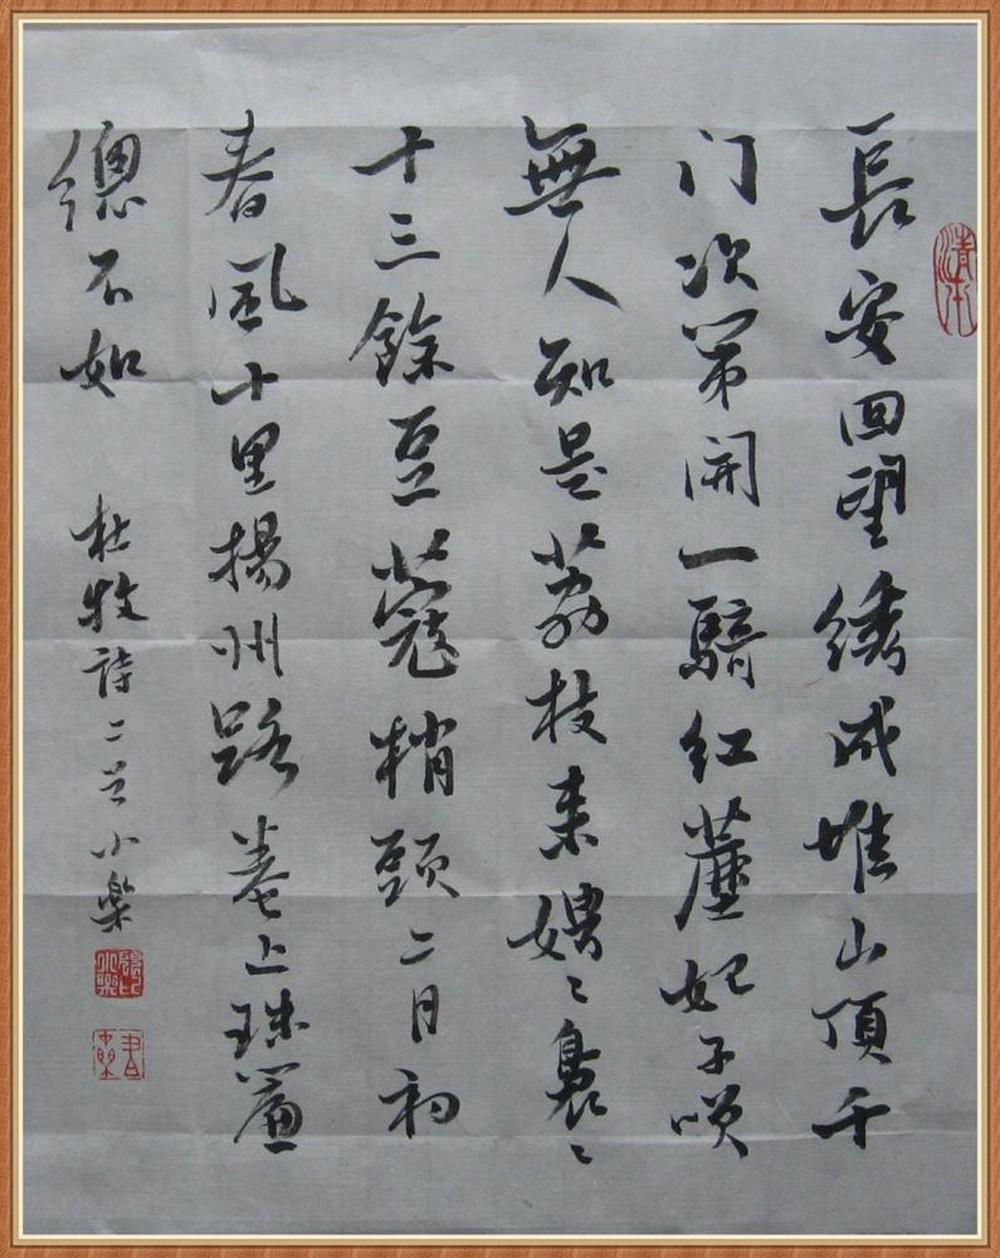 長安回望绣成堆山頂千
门次第開一騎红塵妃子咲
無人知是荔枝来娉〻裊〻
十三餘豆蔻梢頭二月初
春風十里揚州路卷上珠簾
總不如
杜牧詩二首小樂